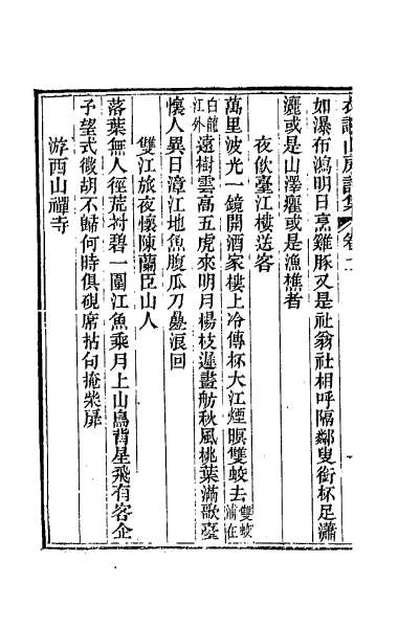 如瀑布瀉明日烹雞豚又是社翁社相呼隔鄰叟銜杯足瀟
灑或是山澤癯或是漁樵者
夜飲臺江樓送客
萬里波光一鏡開酒家樓上冷傳杯大江煙暝雙蛟去雙蛟浦在
白龍江外遠樹雲高五虎來明月楊枝遲畫舫秋風桃葉滿歌臺
懷人異日漳江地魚腹瓜刀疊浪回
雙江旅夜懷陳蘭臣山人
落葉無人徑荒村碧一圍江魚乘月上山鳥背星飛有客企
予望式微胡不歸何時俱硯席拈句掩柴扉
游西山禪寺